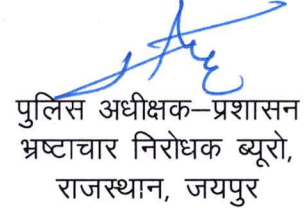 पुलिस अधीक्षक–प्रशासन
भ्रष्टाचार निरोधक ब्यूरो,
राजस्थान, जयपुर